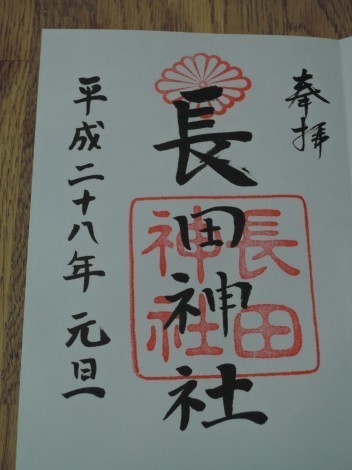 奉拝
長田神社
長田
神社
平成二十八年 元旦